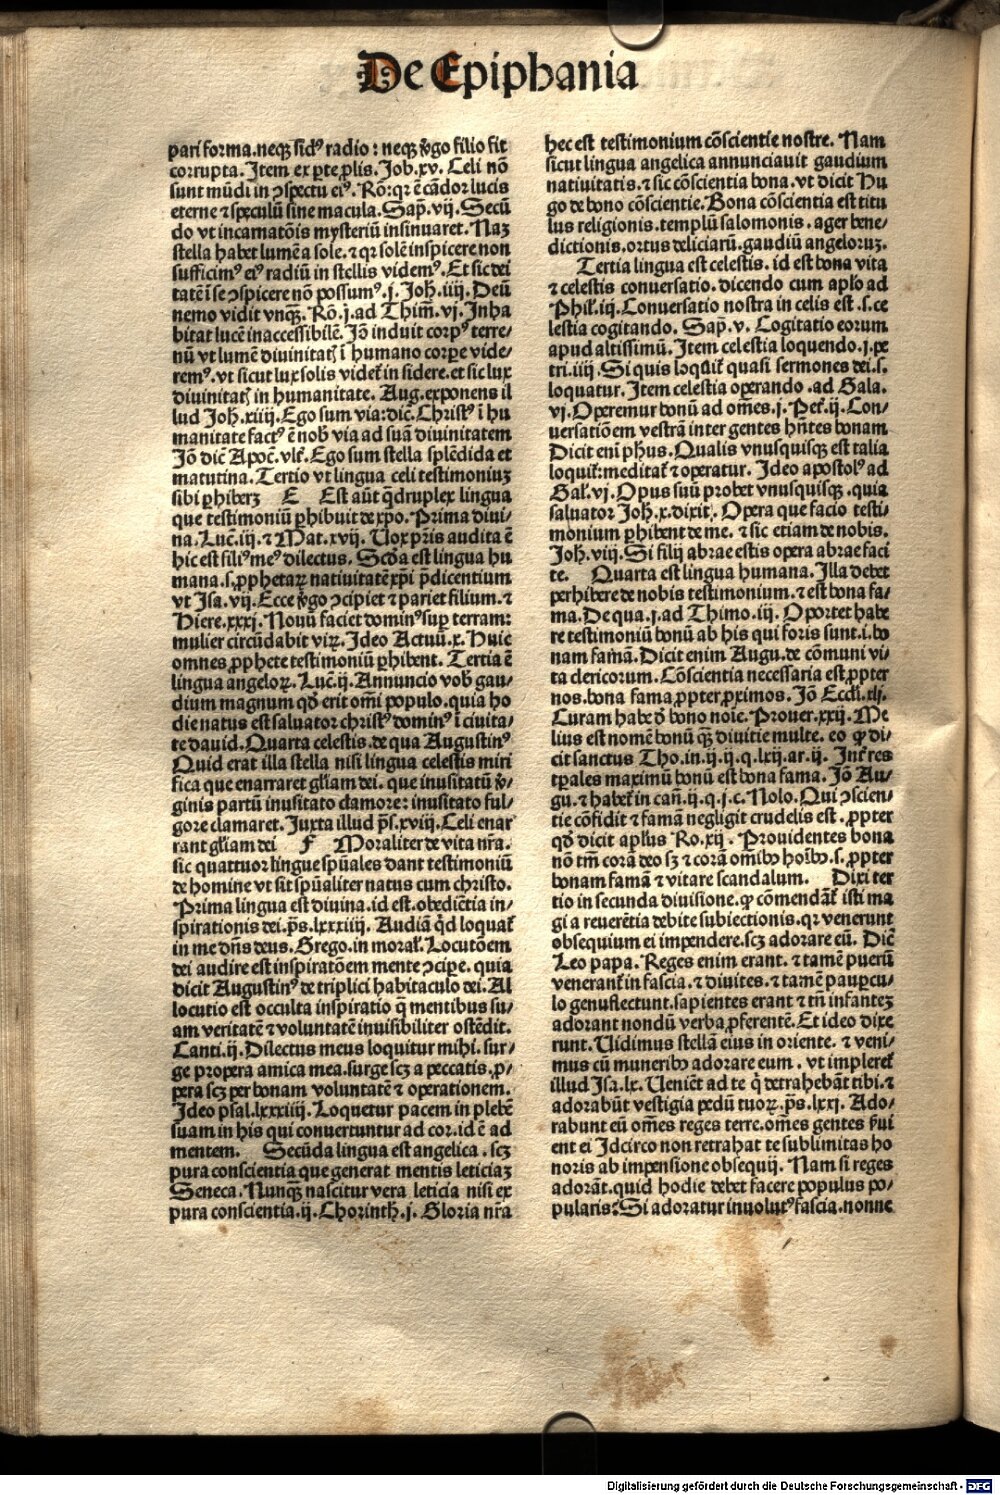 De Epiphania
pari forma.neqꝫ sidꝰ radio : neqꝫ v̄go filio fit
corrupta. Item ex ꝑte ꝓlis. Job.xv. Celi nō
sunt mūdi in ↄspectu eiꝰ. Rō:qr ē cādor lucis
eterne ⁊ spęculū sine macula.Sap̄.vij. Secū
do vt incarnatōis mysteriū insinuaret. Naꝫ
stella habet lumē a sole.⁊ qr solē inspicere non
sufficimꝰ eiꝰ radiū in stellis videmꝰ.Et sic dei
tatē ī se ↄspicere nō possumꝰ.j. Joh̄.iiij. Deū
nemo vidit vnqꝫ. Rō.j.ad Thim̄.vj. Inha
bitat lucē inaccessibilē. Jō induit corpꝰ terre⸗
nū vt lumē diuinitatꝭ ī humano corꝑe vide⸗
remꝰ.vt sicut lux solis videt̄ in sidere.et sic lux
diuinitatꝭ in humanitate. Aug.exponens il
lud Joh̄.xiiij.Ego sum via:dic̄. Christꝰ ī hu
manitate factꝰ ē nob̄ via ad suā diuinitatem
Jō dic̄ Apoc̄.vlt̄. Ego sum stella splēdida et
matutina. Tertio vt lingua celi testimoniuꝫ
sibi ꝑhiberꝫ E Est aūt q̄druplex lingua
que testimoniū ꝑhibuit de xp̄o. Prima diui⸗
na. Luc̄.iij.⁊ Mat.xvij. Uox pr̄is audita ē
hic est filiꝰ meꝰ dilectus. Scd̄a est lingua hu
mana.s.ꝓphetaꝝ natiuitatē xp̄i p̄dicentium
vt Isa.vij.Ecce v̄go ↄcipiet ⁊ pariet filium.⁊
Hiere.xxxj. Nouū faciet dominꝰ suꝑ terram:
mulier circūdabit viꝝ. Ideo Actuū.x. Huic
omnes ꝓphete testimoniū ꝑhibent. Tertia ē
lingua angeloꝝ. Luc̄.ij. Annuncio vob̄ gau⸗
dium magnum qd̄ erit om̄i populo.quia ho
die natus est saluator christꝰ dominꝰ ī ciuita⸗
te dauid.Quarta celestis.de qua Augustinꝰ
Quid erat illa stella nisi lingua celestis miri
fica que enarraret gl̄iam dei. que inusitatū v̄⸗
ginis partū inusitato clamore: inusitato ful⸗
gore clamaret. Iuxta illud p̄s.xviij.Celi enar
rant gl̄iam dei F Moraliter de vita nr̄a.
sic quattuor lingue sp̄uales dant testimoniū
de homine vt sit sp̄ualiter natus cum christo.
Prima lingua est diuina.id est.obediētia in⸗
spirationis dei.p̄s.lxxxiiij. Audiā q̄d loquat̄
in me dn̄s deus. Grego.in moral̄. Locutōem
dei audire est inspiratōem mente ↄciꝑe. quia
dicit Augustinꝰ de triplici habitaculo dei. Al
locutio est occulta inspiratio q̄ mentibus su⸗
am veritatē ⁊ voluntatē inuisibiliter ostēdit.
Canti.ij. Dilectus meus loquitur mihi. sur⸗
ge propera amica mea.surge scꝫ a peccatis.ꝓ⸗
pera scꝫ per bonam voluntatē ⁊ operationem.
Ideo psal.lxxxiiij. Loquetur pacem in plebē
suam in his qui conuertuntur ad cor.id ē ad
mentem. Secūda lingua est angelica . scꝫ
pura conscientia que generat mentis leticiaꝫ
Seneca. Nunqꝫ nascitur vera leticia nisi ex
pura conscientia.ij.Chorinth̄.j. Gloria nr̄a
hec est testimonium cōscientie nostre. Nam
sicut lingua angelica annunciauit gaudium
natiuitatis.⁊ sic cōscientia bona.vt dicit Hu
go de bono cōscientie.Bona cōscientia est titu
lus religionis.templū salomonis.ager bene⸗
dictionis.ortus deliciarū.gaudiū angelorum.
Tertia lingua est celestis. id est bona vita
⁊ celestis conuersatio. dicendo cum apl̄o ad
Phil̄.iij. Conuersatio nostra in celis est .s.ce
lestia cogitando. Sap̄.v. Cogitatio eorum
apud altissimū. Item celestia loquendo.j.pe
tri.iiij. Si quis loquit̄ quasi sermones dei.s.
loquatur. Item celestia oꝑando .ad Gala.
vj.Operemur bonū ad om̄es.j. Pet̄.ij. Con⸗
uersatiōem vestrā inter gentes hn̄tes bonam
Dicit eni p̄hus. Qualis vnusquisqꝫ est talia
loquit̄:meditat̄ ⁊ operatur. Ideo apostolꝰ ad
Gal̄.vj. Opus suū probet vnusquisqꝫ.quia
saluator Joh̄.x.dixit. Opera que facio testi⸗
monium ꝑhibent de me. ⁊ sic etiam de nobis.
Joh̄.viij. Si filij abrae estis opera abrae faci
te. Quarta est lingua humana. Illa debet
perhibere de nobis testimonium.⁊ est bona fa⸗
ma. De qua.j.ad Thimo.iij. Oportet habe
re testimoniū bonū ab his qui foris sunt.i.bo
nam famā. Dicit enim Augu.de cōmuni vi⸗
ta clericorum. Cōscientia necessaria est ꝓpter
nos.bona fama ꝓpter ꝓximos. Jō Eccl̄i.xlj.
Curam habe d̄ bono noīe. Prouer.xxij. Me
lius est nomē bonū qꝫ diuitie multe. eo ꝙ di⸗
cit sanctus Tho.in.ij.ij.q.lxij.ar.ij. Int̄ res
tꝑales maximū bonū est bona fama. Jō Au⸗
gu.⁊ habet̄ in can̄.ij.q.j.c. Nolo. Qui ↄscien⸗
tie cōfidit ⁊ famā negligit crudelis est . ꝓpter
qd̄ dicit apl̄us Ro.xij . Prouidentes bona
nō tm̄ corā deo sꝫ ⁊ corā om̄ibꝰ hoībꝰ.s.ꝓpter
bonam famā ⁊ vitare scandalum. Dixi ter
tio in secunda diuisione.ꝙ cōmendāt̄ isti ma
gi a reuerētia debite subiectionis.qr venerunt
obsequium ei impendere.scꝫ adorare eū. Dic̄
Leo papa. Reges enim erant.⁊ tamē puerū
venerant̄ in fascia.⁊ diuites.⁊ tamē pauꝑcu⸗
lo genuflectunt.sapientes erant ⁊ tn̄ infanteꝫ
adorant nondū verba ꝓferentē. Et ideo dixe
runt. Uidimus stellā eius in oriente. ⁊ veni⸗
mus cū muneribꝰ adorare eum . vt impleret̄
illud Isa.lx. Ueniēt ad te q̄ detrahebāt tibi.⁊
adorabūt vestigia pedū tuoꝝ.p̄s.lxxj. Ado⸗
rabunt eū om̄es reges terre.om̄es gentes ẜui
ent ei Idcirco non retrahat te sublimitas ho
noris ab impensione obsequij. Nam si reges
adorāt.quid hodie debet facere populus po⸗
pularis:Si adoratur inuolutꝰ fascia.nonne
Digitalisierung gefördert durch die Deutsche Forschungsgemeinschaft - DFG